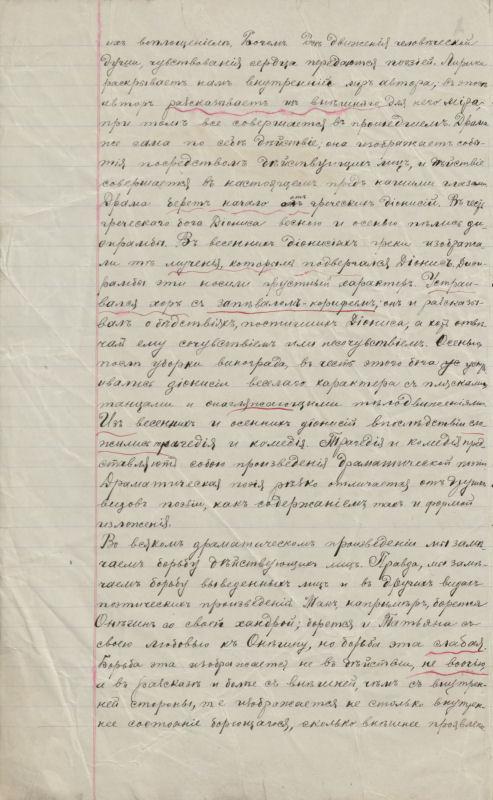 ихъ воплощеніемъ. Движенія человѣческой
души, чувствованія сердца передаются поэзіей. Лирика
раскрываетъ намъ внутренній міръ автора; въ эпосѣ
авторъ разсказываетъ изъ внѣшняго для него міра,
при томъ все совершается въ прошедшемъ. Драма
же сама по себѣ дѣйствіе; она изображаетъ собы-
тія посредствомъ дѣйствующихъ лицъ, и дѣйствіе
совершается въ настоящемъ предъ нашими глазами.
Драма беретъ начало отъ греческихъ діонисій. Въ честь
греческаго бога Діониса весною и осенью пѣлись ди-
фирамбы. Въ весеннихъ діонисіяхъ греки изобража-
ли тѣ мученія, которымъ подвергался Діонисъ. Диѳи-
рамбы эти носили грустный характеръ. Устраи-
вался хоръ съ запѣваломъ-корифеемъ; онъ и разсказы-
валъ о бѣдствіяхъ, постигшихъ Діониса, а хоръ отвѣ-
чалъ ему сочувствіемъ или несочувствіемъ. Осенью,
послѣ уборки винограда, въ честь этого бога устра-
ивались діонисіи веселаго характера съ плясками,
танцами и тѣлодвиженіями.
Изъ весеннихъ и осеннихъ діонисій впослѣдствіи сло-
жились трагедія и комедія. Трагедія и комедія пред-
ставляютъ собою произведенія драматической поэзіи.
Драматическая поэзія рѣзко отличается отъ другихъ
видовъ поэзіи, какъ содержаніемъ такъ и формой
изложенія.
Во всякомъ драматическомъ произведеніи мы замѣ-
чаемъ борьбу дѣйствующихъ лицъ. Правда, мы замѣ-
чаемъ борьбу выведенныхъ лицъ и въ другихъ видахъ
поэтическихъ произведеній. Такъ напримѣръ, борется
Онѣгинъ со своей хандрой; борется и Татьяна съ
своею любовью къ Онѣгину, но борьба эта слабая.
Борьба эта изображается не въ дѣйствіи, не воочью,
а въ разсказѣ и болѣе съ внѣшней, чѣмъ съ внутрен-
ней стороны, т.е. изображается не столько внутрен-
нее состояніе борющагося, сколько внѣшнее проявле-